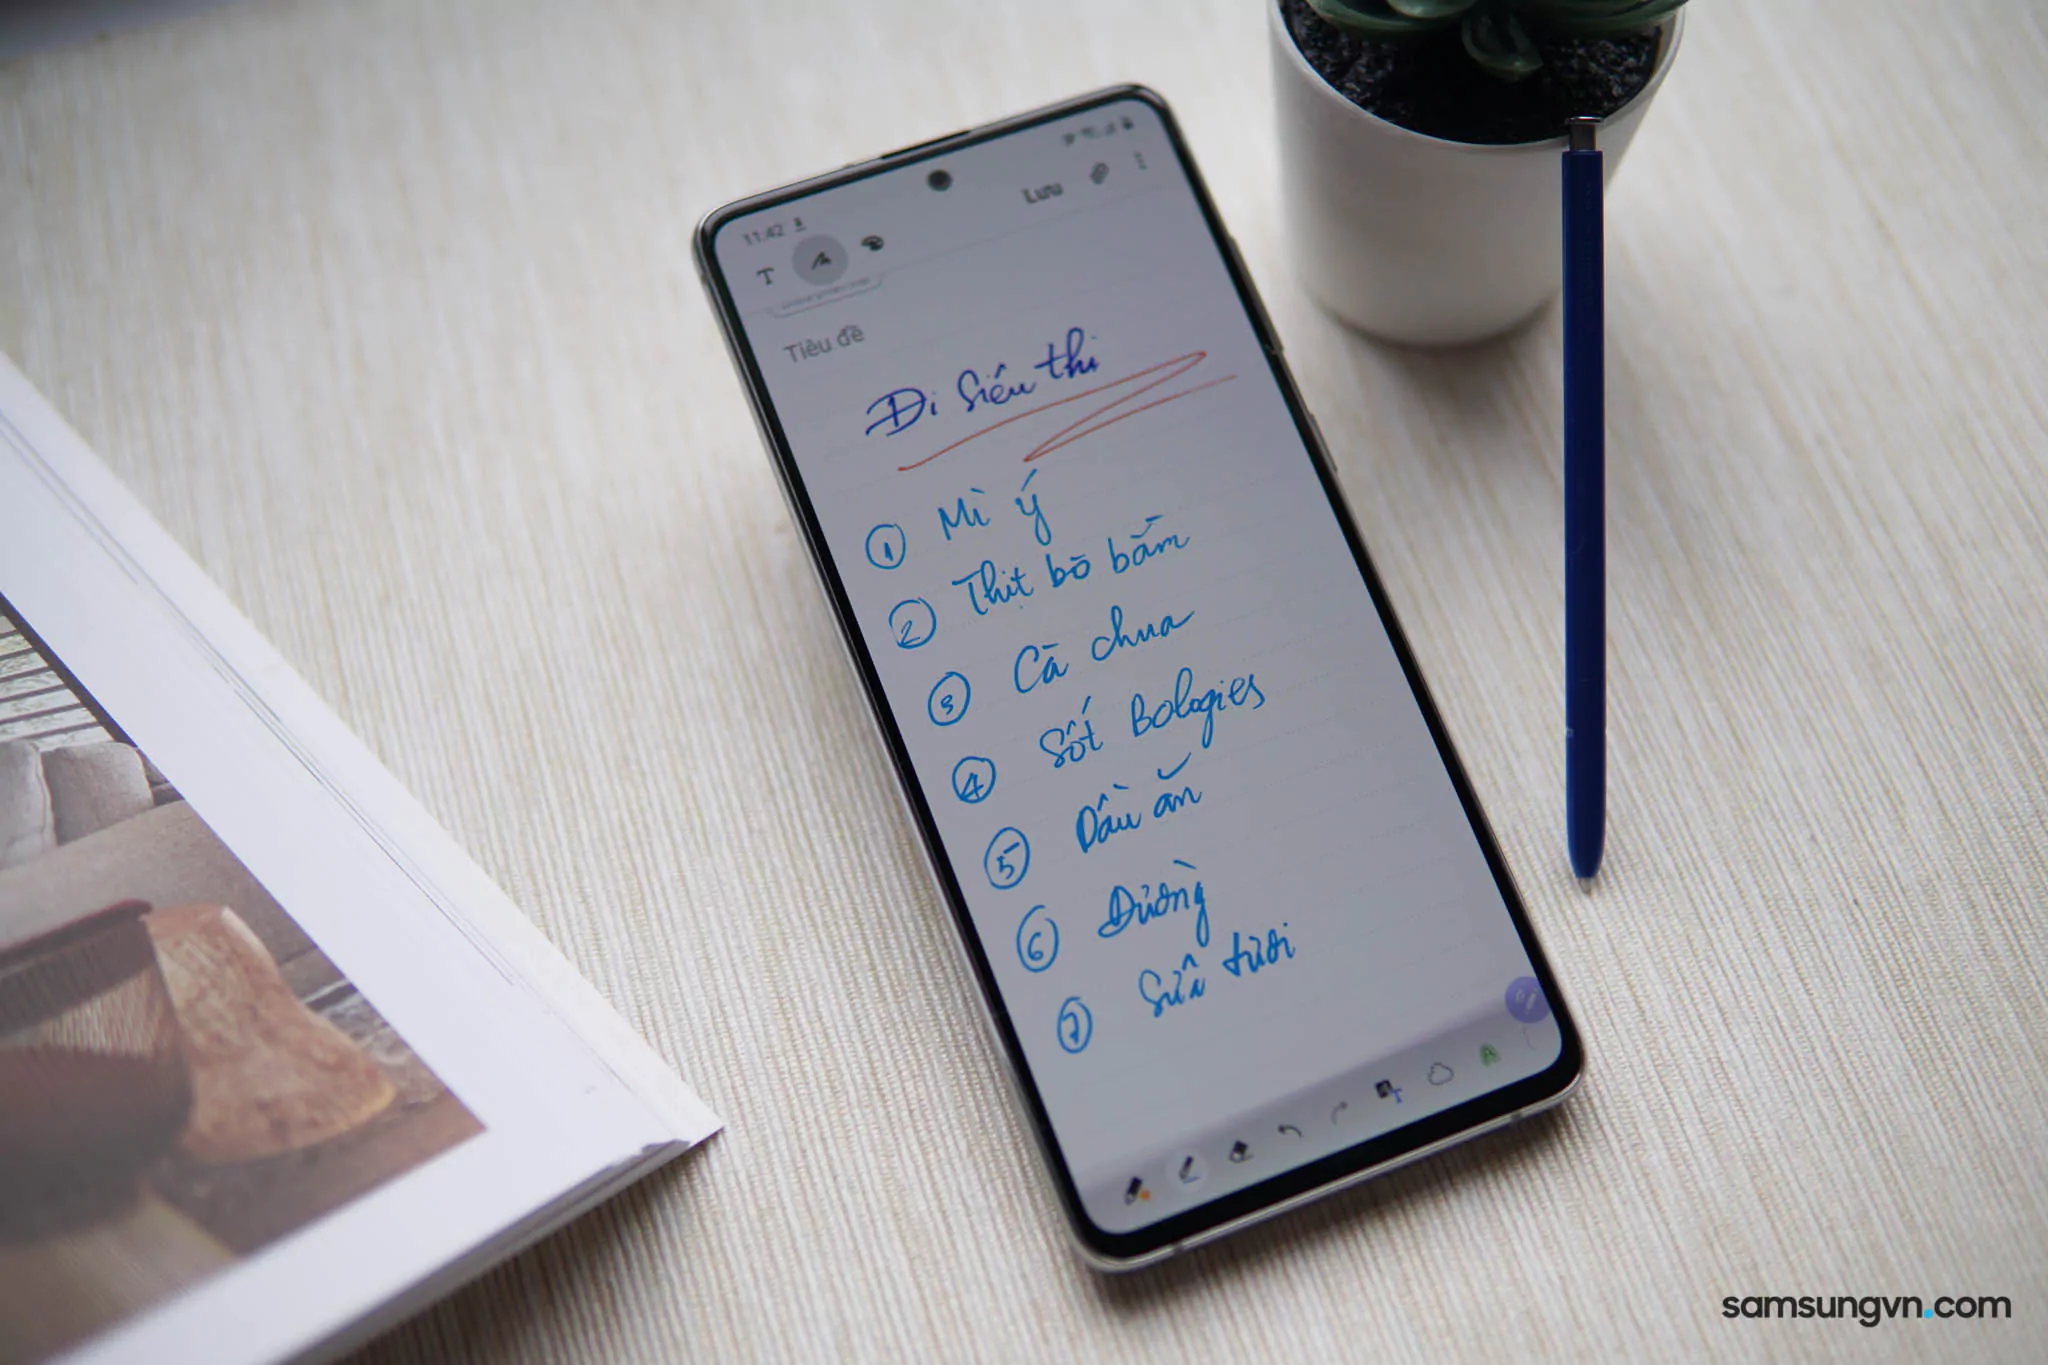 11:42
Lưu
T
Tiêu đề
Đi siêu thi
1 Mì ý
2 Thịt bò bằm
3 Cà chua
4 Sốt Bologies
5 Dầu ăn
6 Đường
7 Sữa tươi
samsungvn.com